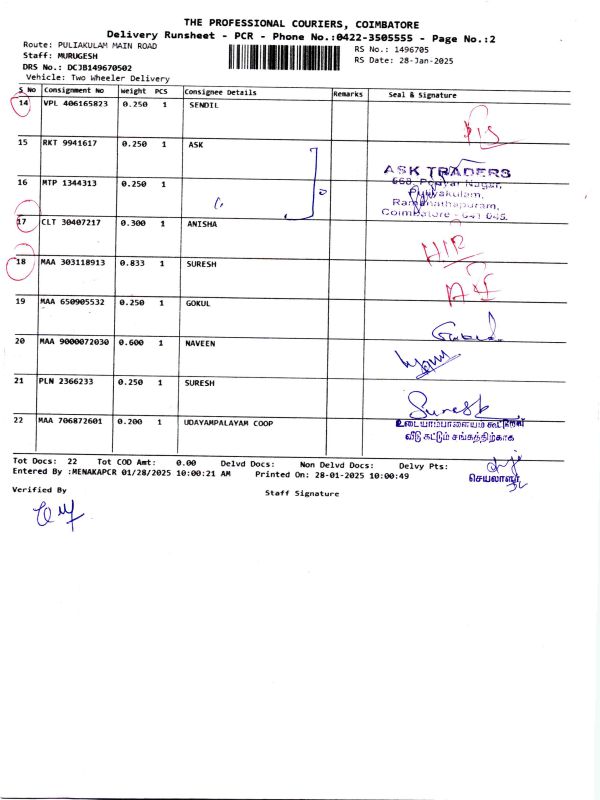 THE PROFESSIONAL COURIERS, COIMBATORE
Delivery Runsheet - PCR - Phone No.:0422-3505555 - Page No.:2
Route: PULIAKULAM MAIN ROAD
RS No.: 1496705
Staff: MURUGESH
RS Date: 28-Jan-2025
DRS No.: DCJB149670502
Vehicle: Two Wheeler Delivery
S No Consignment No Weight PCS Consignee Details Remarks Seal & Signature
14 VPL 406165823 0.250 1 SENDIL
15 RKT 9941617 0.250 1 ASK
ASK TRADERS
16 MTP 1344313 0.250 1
Puliyakulam,
Ramanathapuram,
Coimbatore - 641 045.
17 CLT 30407217 0.300 1 ANISHA
18 MAA 303118913 0.833 1 SURESH
19 MAA 650905532 0.250 1 GOKUL
20 MAA 9000072030 0.600 1 NAVEEN
21 PLN 2366233 0.250 1 SURESH
Suresh
22 MAA 706872601 0.200 1 UDAYAMPALAYAM COOP
உடையாம்பாளையம் கூட்டுறவு
வீடு கட்டும் சங்கத்திற்காக
செயலாளர்
Tot Docs: 22 Tot COD Amt: 0.00 Delvd Docs: Non Delvd Docs: Delvy Pts:
Entered By :MENAKAPCR 01/28/2025 10:00:21 AM Printed On: 28-01-2025 10:00:49
Verified By
Staff Signature